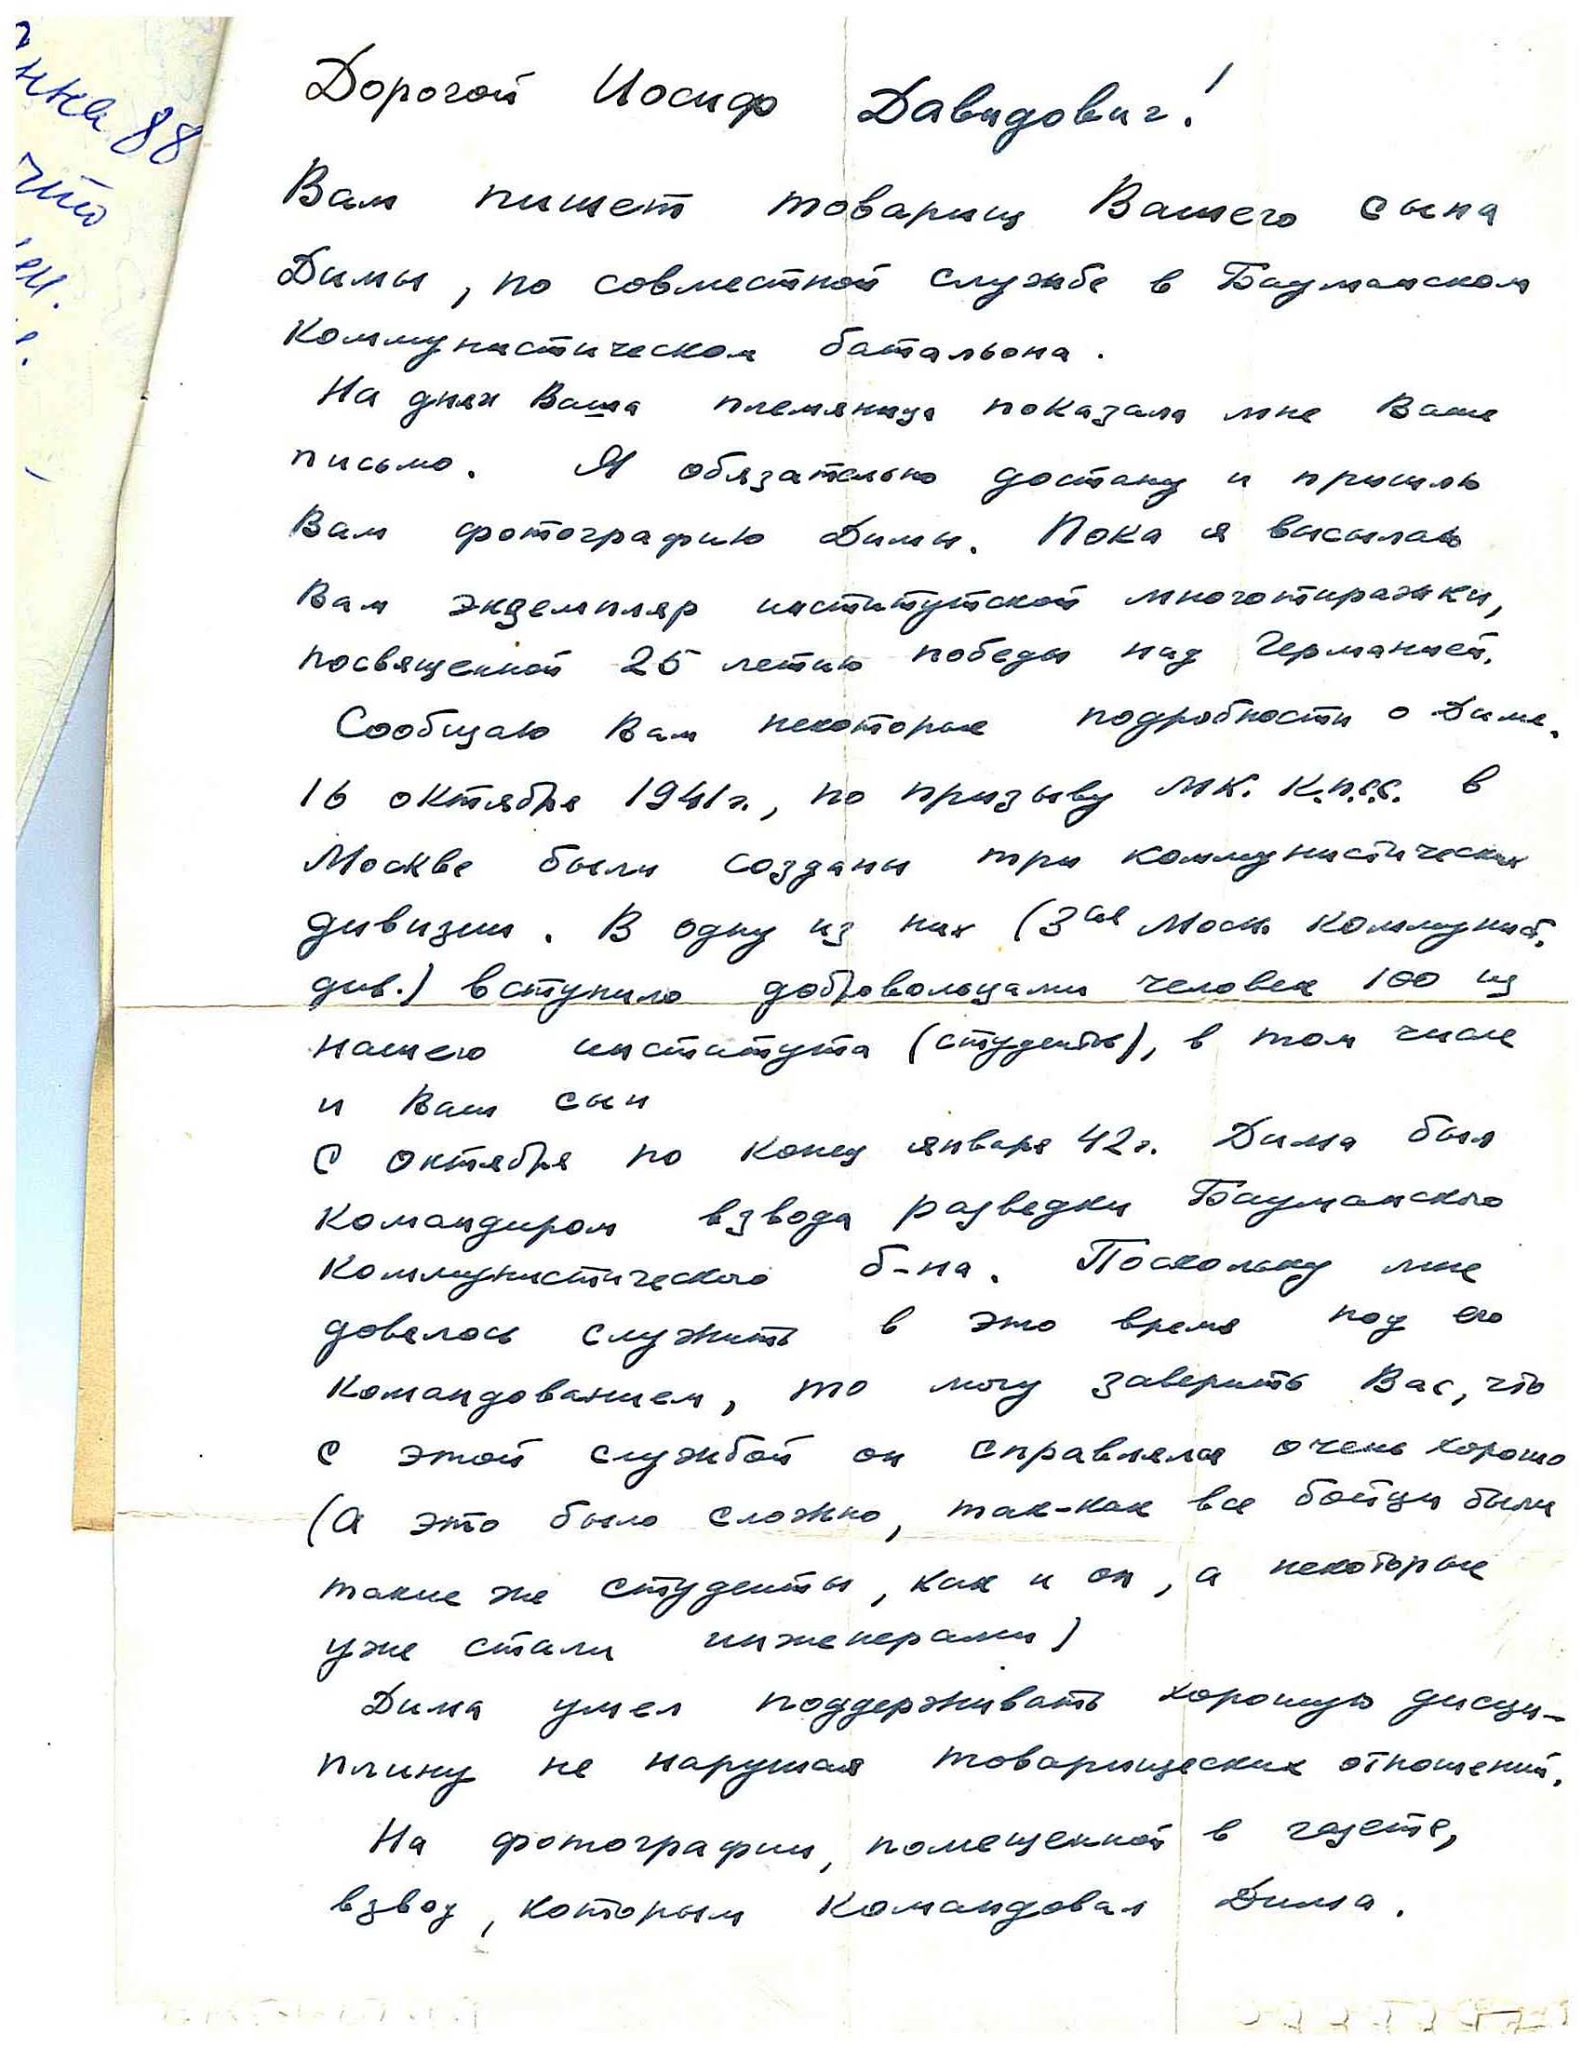 Дорогой Иосиф Давидович!
Вам пишет товарищ Вашего сына
Димы, по совместной службе в Баумановском
Коммунистическом батальона.
На днях Ваша племяница показала мне Ваше
письмо. Я обязательно достану и пришлю
Вам фотографию Димы. Пока я высылаю
Вам экземпляр институтской многотиражки,
посвященной 25 летию победы над Германией.
Сообщаю Вам некоторые подробности о Диме.
16 октября 1941г., по призыву МК. К.П.С.С. в
Москве были созданы три коммунистических
дивизии. В одну из них (3ая Моск. Коммунист.
див.) вступило добровольцами человек 100 из
нашего института (студенты), в том числе
и Ваш сын
С октября по конец января 42г. Дима был
командиром взвода разведки Бауманского
Коммунистического б-на. Поскольку мне
довелось служить в это время под его
командованием, то могу заверить Вас, что
с этой службой он справлялся очень хорошо
(а это было сложно, так-как все бойцы были
такие же студенты, как и он, а некоторые
уже стали инженерами)
Дима умел поддерживать хорошую дисци-
плину не нарушая товарищеских отношений.
На фотографии, помещенной в газете,
взвод, которым командовал Дима.
88
что